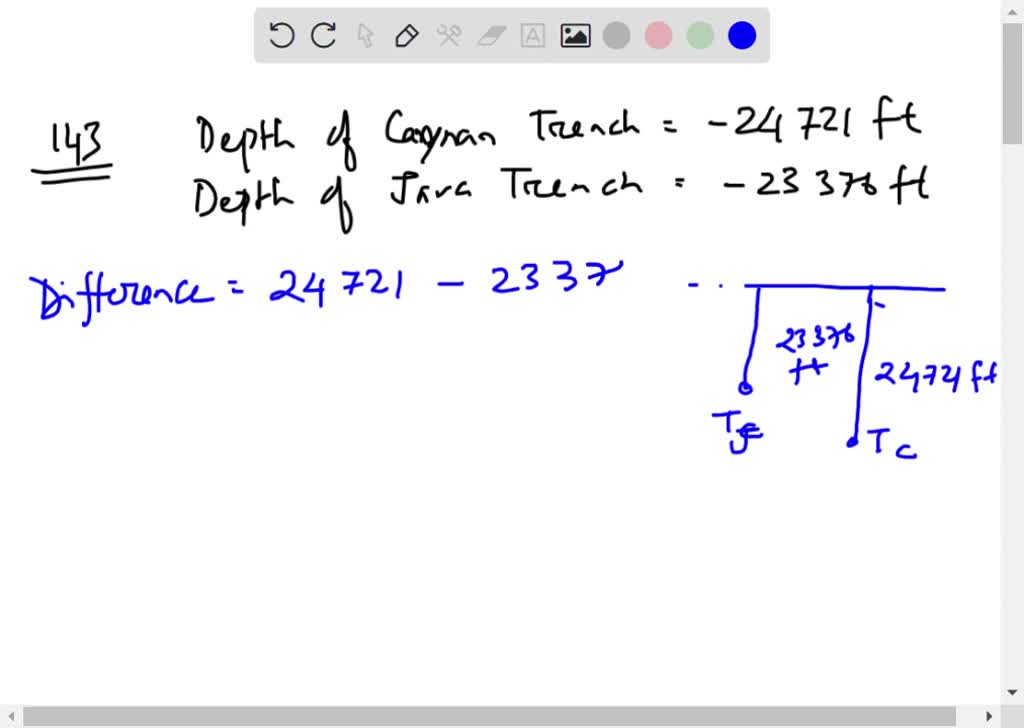 143 Depth of Cayman Trench = -24 721 ft
Depth of Java Trench = -23 376 ft
Difference = 24 721 - 2337
23376
ft
24721 ft
TJ
TC